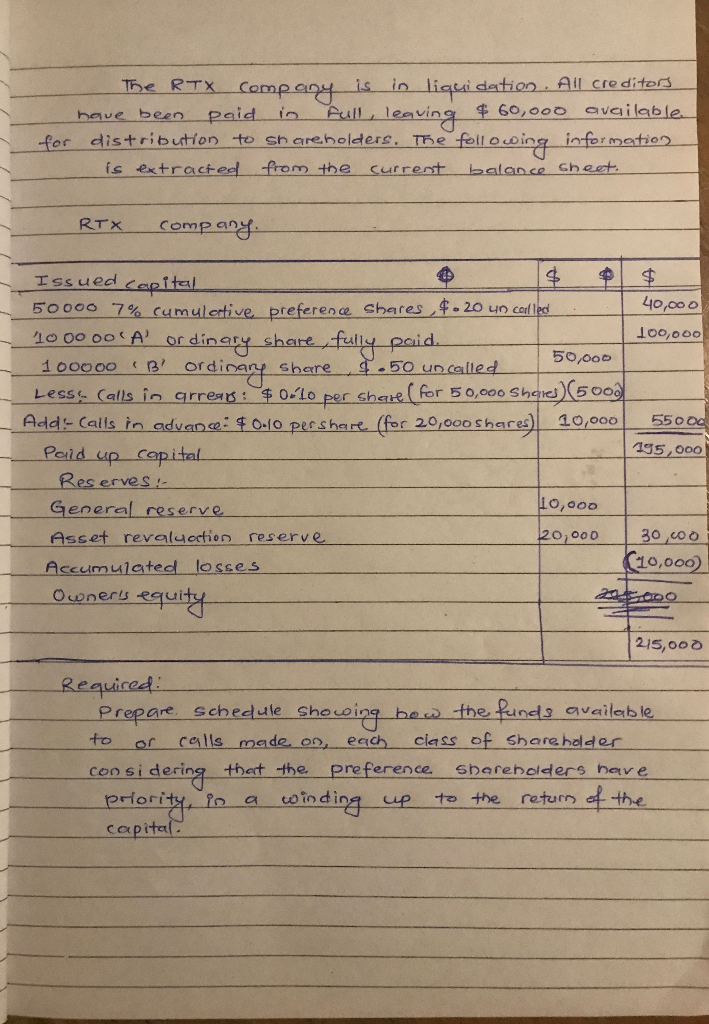 The RTX company is in liquidation. All creditors
have been paid in full, leaving $ 60,000 available
for distribution to shareholders. The following information
is extracted from the current balance sheet.
RTX company.
Issued capital $ $ $ $
50000 7% cumulative preference shares, $.20 uncalled 40,000
100000 'A' ordinary share, fully paid. 100,000
100000 'B' ordinary share, $.50 uncalled 50,000
Less:- Calls in arrears: $0.10 per share (for 50,000 shares) (5000)
Add:- Calls in advance: $0.10 per share (for 20,000 shares) 10,000 55000
Paid up capital 195,000
Reserves:-
General reserve 10,000
Asset revaluation reserve 20,000 30,000
Accumulated losses (10,000)
Owner's equity
215,000
Required:
Prepare schedule showing how the funds available
to or calls made on, each class of shareholder
considering that the preference shareholders have
priority, in a winding up to the return of the
capital.